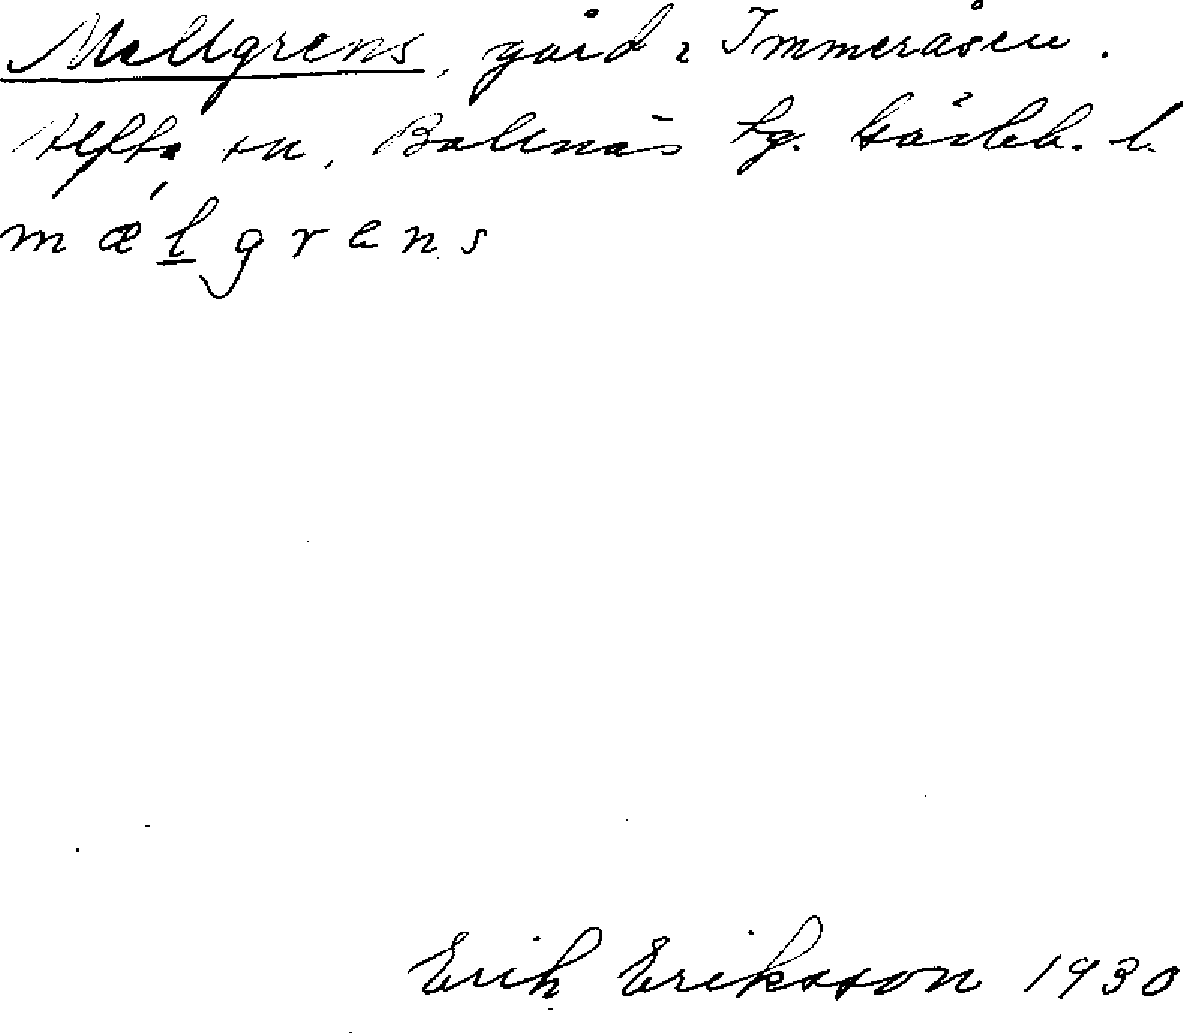 Mellgrens, gård i Immeråsen.
Alfta sn, Bollnäs tg. Gävleb. l.
mæ´lgrens
Erik Eriksson 1930